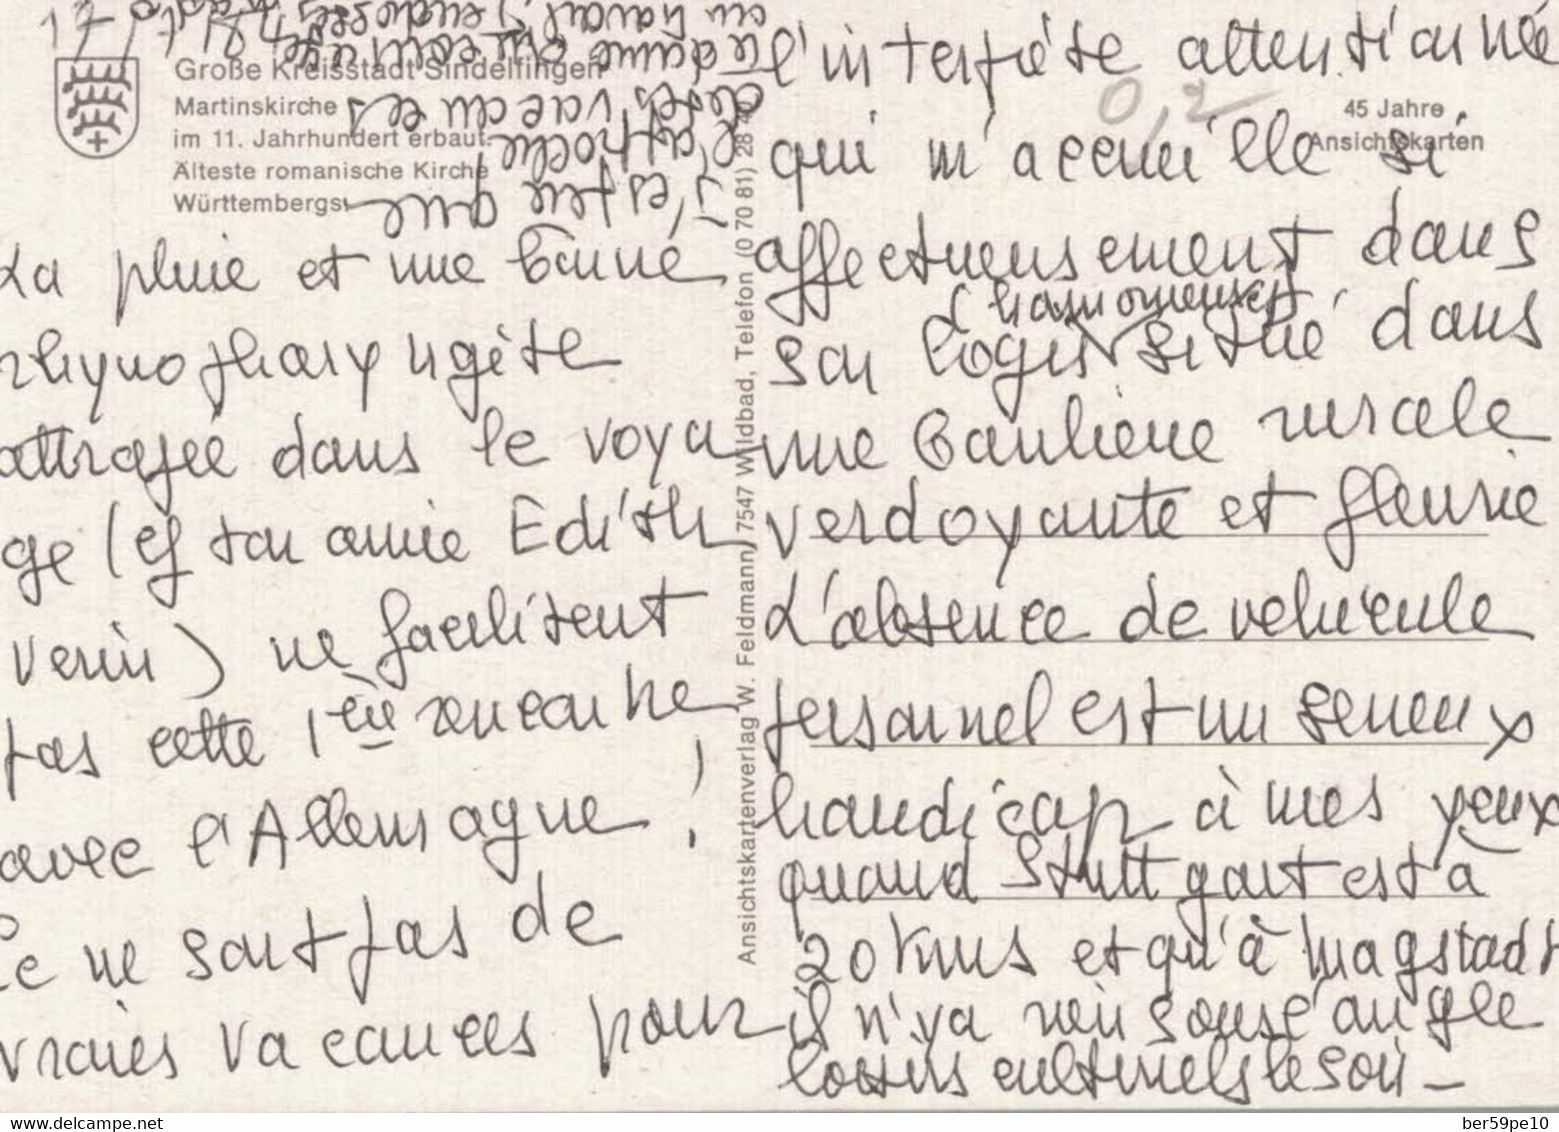 17/
Große Kreisstadt Sindelfingen
Martinskirche
im 11. Jahrhundert erbaut.
Älteste romanische Kirche
Württembergs.
45 Jahre
Ansichtskarten
0,2
La pluie et une bonne
rhynopharyngite
attrapée dans le voya
ge (cf ton amie Edith
verin) ne facilitent
pas cette 1ère rencontre
avec l'Allemagne !
Ce ne sont pas de
vraies vacances pour
l'interprète attentionnée
qui m'accueille si
affectueusement dans
son logis harmonieuset situé dans
une banlieue rurale
verdoyante et fleurie
L'absence de véhicule
personnel est un serieux
handicap à mes yeux
quand Stuttgart est à
20 kms et qu'à Magstadt
il n'ya rien sous l'angle
loisirs culturels le soir -
J'espère que
l'approche
des vacances
Ansichtskartenverlag W. Feldmann, 7547 Wildbad, Telefon (0 70 81) 28
delcampe.net
ber59pe10